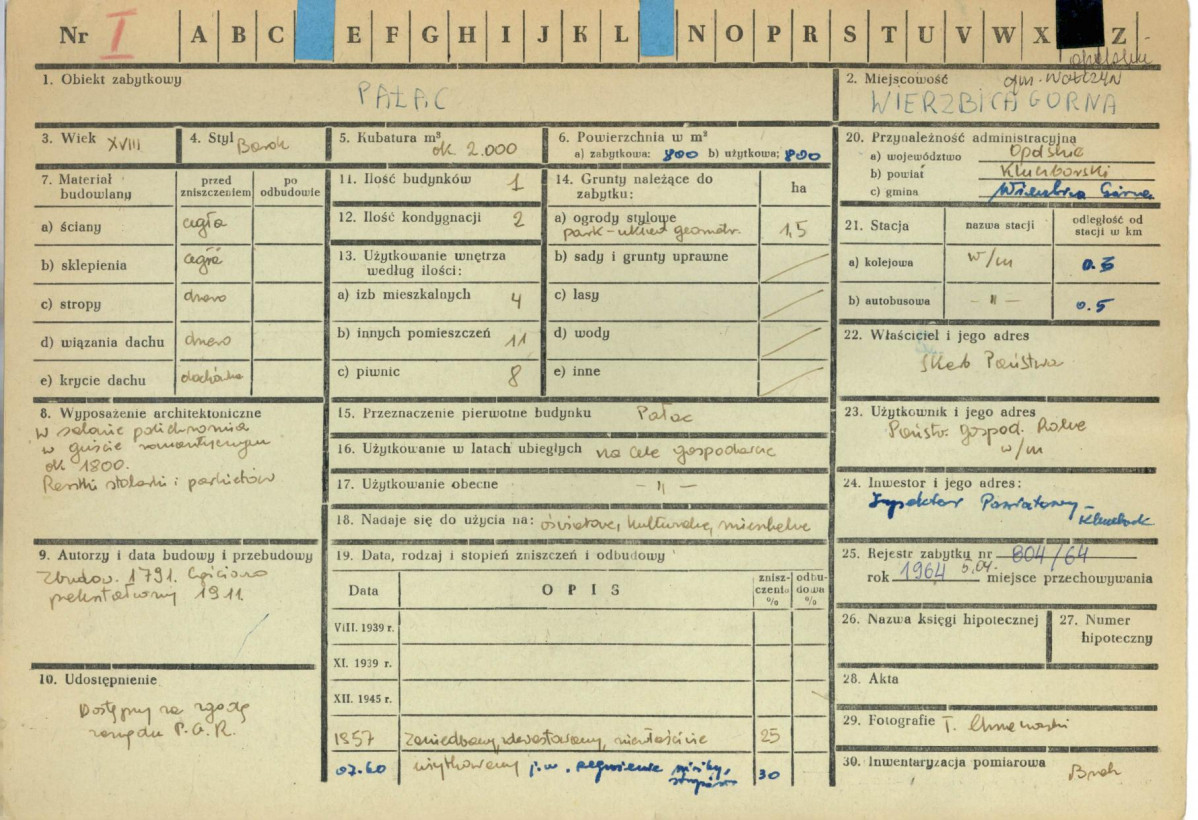 Nr I A B C E F G H I J K L N O P R S T U V W X Z
opolskie
1. Obiekt zabytkowy
PAŁAC
2. Miejscowość gm. WOŁCZYN
WIERZBICA GÓRNA
3. Wiek XVIII
4. Styl Barok
5. Kubatura m³
ok. 2.000
6. Powierzchnia w m²
a) zabytkowa: 800 b) użytkowa: 800
7. Materiał budowlany
przed zniszczeniem
po odbudowie
a) ściany cegła
b) sklepienia cegła
c) stropy drewno
d) wiązania dachu drewno
e) krycie dachu dachówka
8. Wyposażenie architektoniczne
W salonie polichromia
w guście romantycznym
ok 1800.
Resztki stolarki i parkietów
9. Autorzy i data budowy i przebudowy
Zbudow. 1791. Częściowo
przekształcony 1911.
10. Udostępnienie
Dostępny za zgodą
zarządu P.G.R.
11. Ilość budynków 1
12. Ilość kondygnacji 2
13. Użytkowanie wnętrza
według ilości:
a) izb mieszkalnych 4
b) innych pomieszczeń 11
c) piwnic 8
14. Grunty należące do
zabytku:
ha
a) ogrody stylowe
park - układ geometr. 1,5
b) sady i grunty uprawne
c) lasy
d) wody
e) inne
15. Przeznaczenie pierwotne budynku Pałac
16. Użytkowanie w latach ubiegłych na cele gospodarcze
17. Użytkowanie obecne - " -
18. Nadaje się do użycia na: oświatowe, kulturalne, mieszkalne
19. Data, rodzaj i stopień zniszczeń i odbudowy
Data
O P I S
znisz-
czenia
%
odbu-
dowa
%
VIII. 1939 r.
XI. 1939 r.
XII. 1945 r.
1957 zaniedbany, zdewastowany, niewłaściwie 25
07.60 użytkowany j.w., pęknięcie stropów 30
20. Przynależność administracyjna
a) województwo Opolskie
b) powiat Kluczborski
c) gmina Wierzbica Górna
21. Stacja
nazwa stacji
odległość od
stacji w km
a) kolejowa w/m 0.5
b) autobusowa - " - 0.5
22. Właściciel i jego adres
Skarb Państwa
23. Użytkownik i jego adres
Państw. Gospod. Rolne
w/m
24. Inwestor i jego adres:
Inspektor Powiatowy -
Kluczbork
25. Rejestr zabytku nr 804/64
rok 1964 5.04. miejsce przechowywania
26. Nazwa księgi hipotecznej
27. Numer
hipoteczny
28. Akta
29. Fotografie T. Chrzanowski
30. Inwentaryzacja pomiarowa
Brak